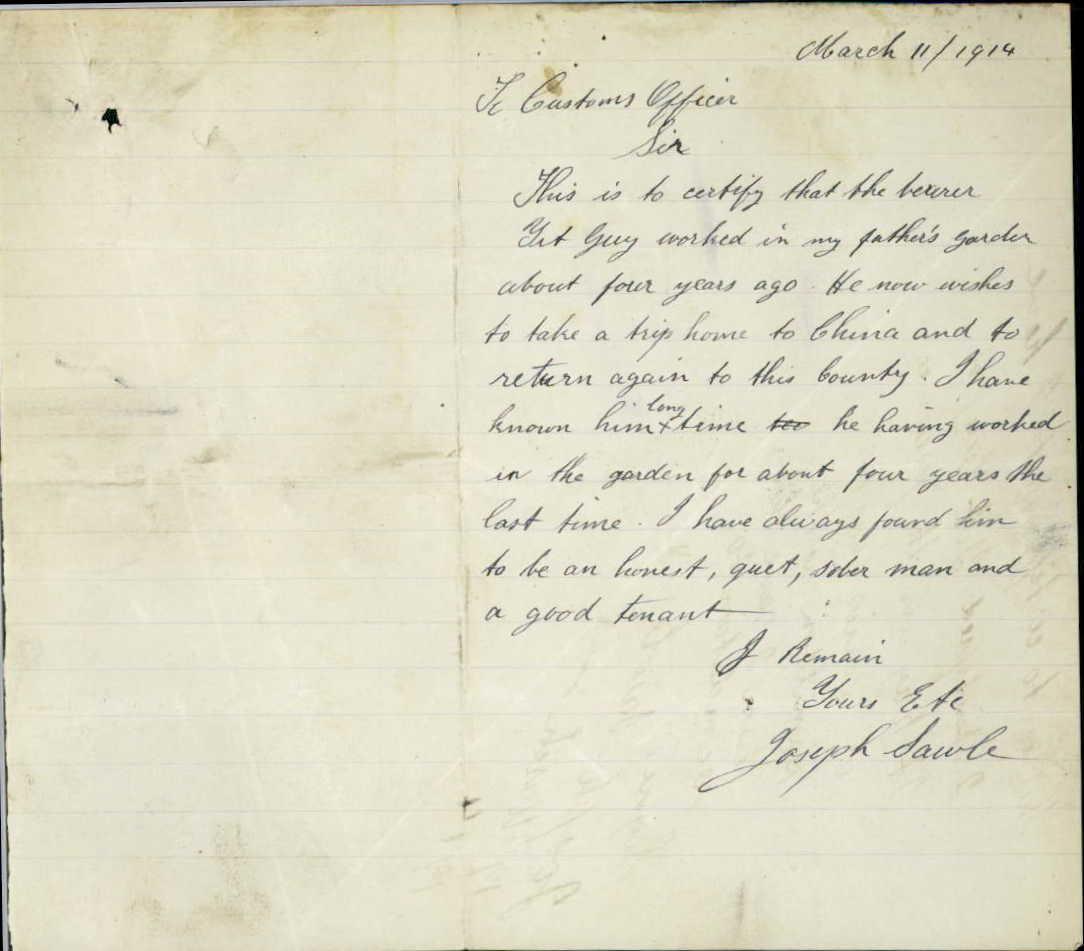 March 11/1914
To Customs Officer
Sir
This is to certify that the bearer
Yet Guy worked in my father's garden
about four years ago. He now wishes
to take a trip home to China and to
return again to this Country. I have
known him long time too he having worked
in the garden for about four years the
last time. I have always found him
to be an honest, quet, sober man and
a good tenant
I Remain
Yours Etc
Joseph Sawle